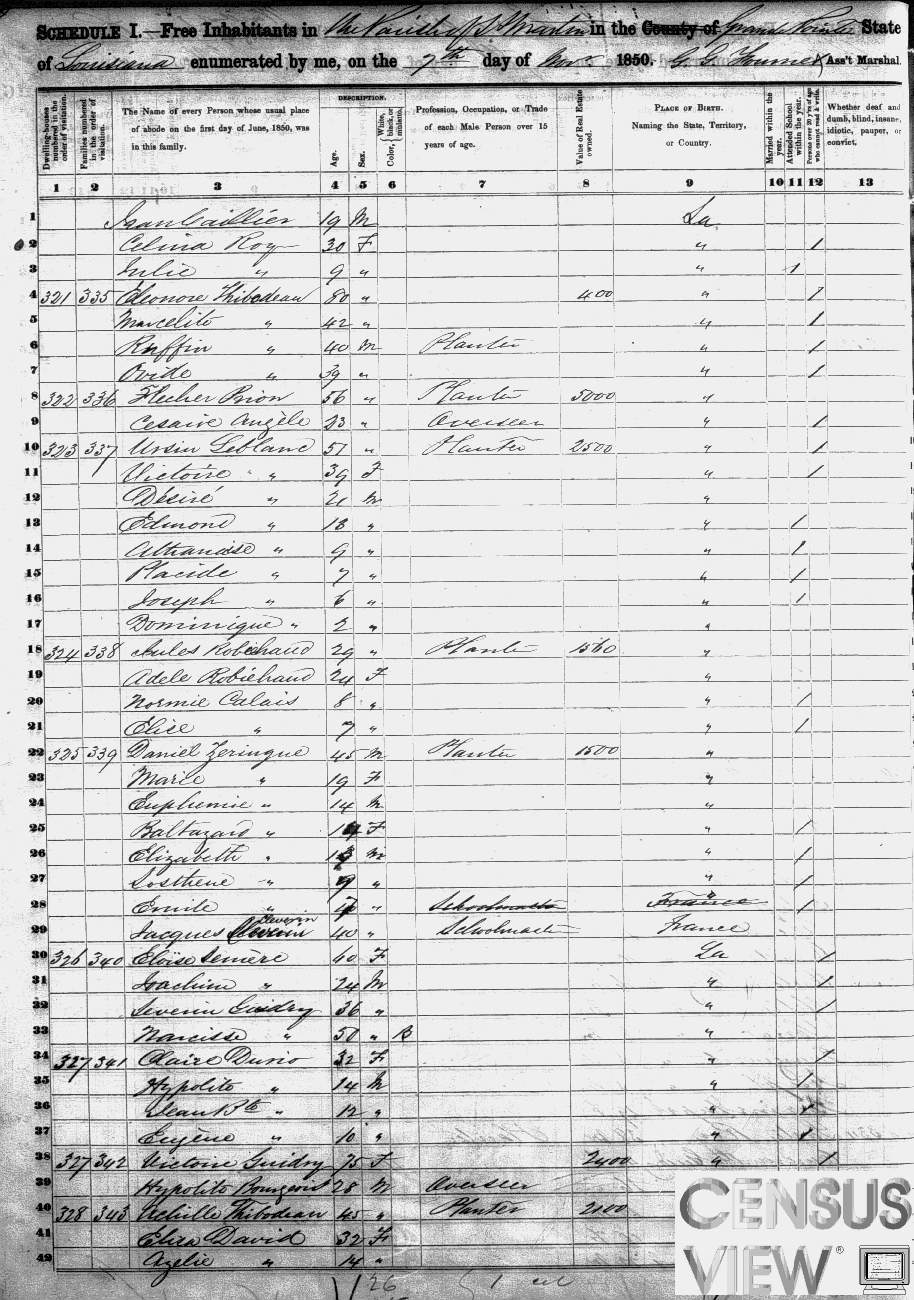 SCHEDULE I.—Free Inhabitants in the Parish of St Martin in the County of Grande Pointe State
of Louisiana enumerated by me, on the 7th day of Nov. 1850. Ass't Marshal.
Dwelling-houses numbered in the order of visitation. Families numbered in the order of visitation. The Name of every Person whose usual place of abode on the first day of June, 1850, was in this family. DESCRIPTION. Age. Sex. Color, White, black, or mulatto. Profession, Occupation, or Trade of each Male Person over 15 years of age. Value of Real Estate owned. PLACE OF BIRTH. Naming the State, Territory, or Country. Married within the year. Attended School within the year. Persons over 20 y'rs of age who cannot read & write. Whether deaf and dumb, blind, insane, idiotic, pauper, or convict.
1 2 3 4 5 6 7 8 9 10 11 12 13
1 19 M La
2 Celina Roy 30 F " 1
3 Julie " 9 " " 1
4 321 335 Eleonore Thibodeau 80 " 400 " 1
5 Marcelite " 42 " " 1
6 Ruffin " 40 M Planter " 1
7 Ovide " 39 " " 1
8 322 336 56 " Planter 5000 "
9 Cesaire Angèle 23 " Overseer " 1
10 323 337 Ursin Leblanc 51 " Planter 2500 " 1
11 Victoire " " 39 F " 1
12 Désiré " 21 M "
13 Edmond " 13 " " 1
14 Athanaise " 9 " " 1
15 Placide " 7 " " 1
16 Joseph " 6 " " 1
17 Dominique " 2 " "
18 324 338 Jules Robichaud 29 " Planter 1500 "
19 Adele Robichaud 24 F "
20 Normie Calais 8 " " 1
21 Elice " 7 " " 1
22 325 339 Daniel Zeringue 45 M Planter 1500 "
23 Marie " 19 F "
24 Euphemie " 14 M "
25 Baltazard " F " 1
26 Elizabeth " M " 1
27 Losthene " 9 " " 1
28 Emile " " Schoolmaster France " 1
29 Jacques Severin 40 " Schoolmaster France
30 326 340 Eloïse Semère 60 F La 1
31 Joachim " 24 M " 1
32 Severin Guidry 36 " " 1
33 Narcisse " 50 " B "
34 327 341 Claire Dusio 32 F " 1
35 Hypolite " 14 M " 1
36 Jean Bte " 12 " " 1
37 Eugène " 10 " " 1
38 327 342 Victoire Guidry 75 F 2400 " 1
39 Hypolite Bourgeois 28 M Overseer
40 328 343 Achille Thibodeau 45 " Planter
41 Eliza David 32 F
42 Azelie " 14 "
26
CENSUS
VIEW®